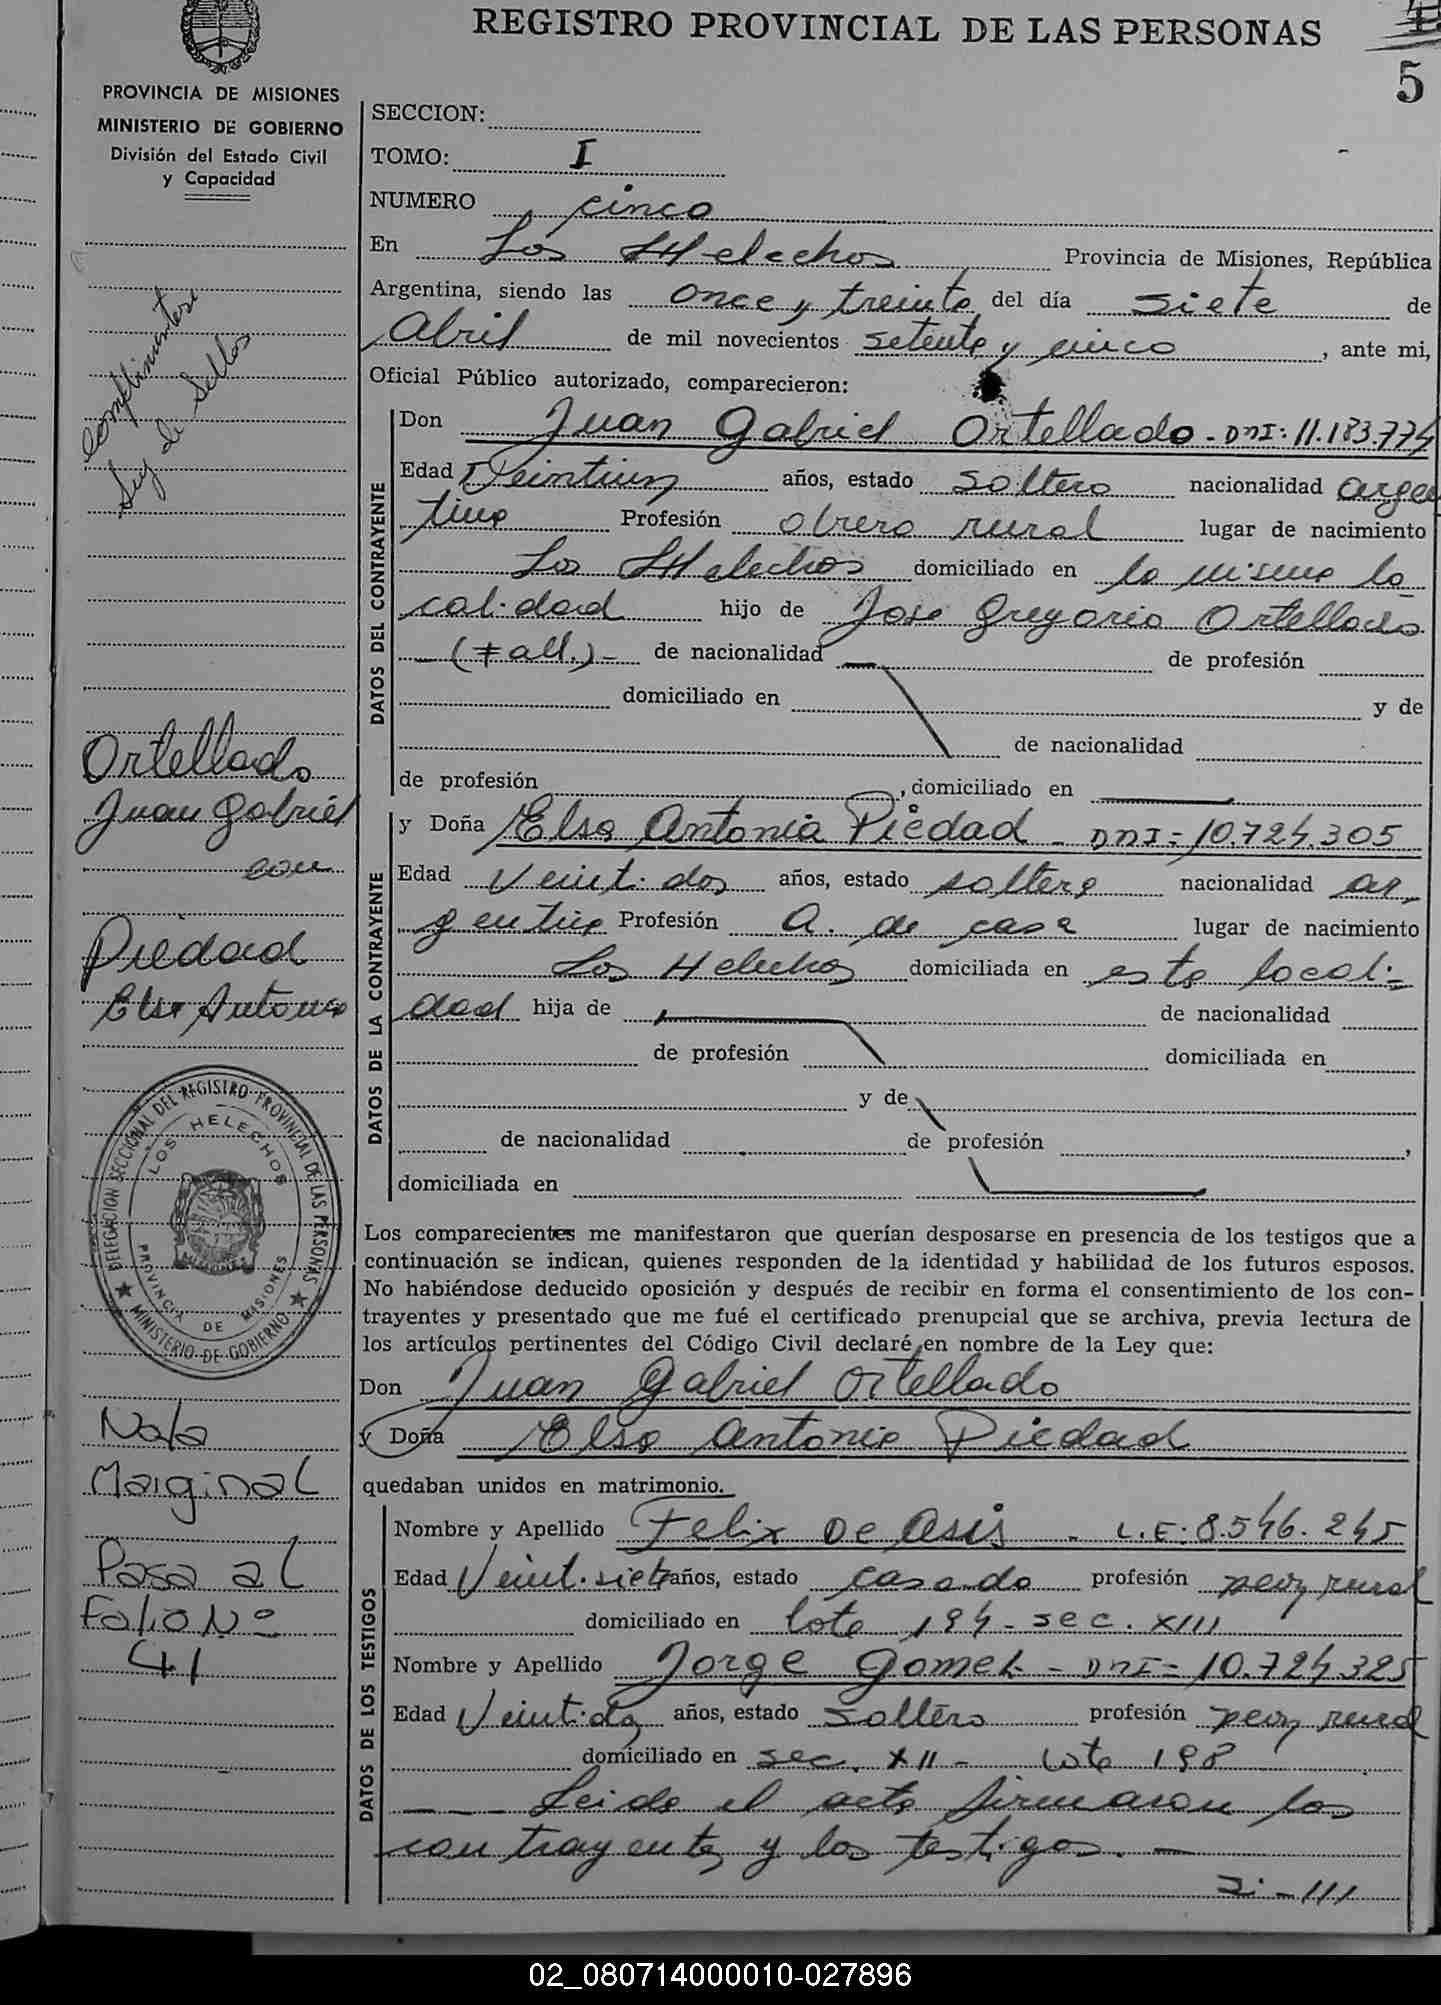 REGISTRO PROVINCIAL DE LAS PERSONAS
5
PROVINCIA DE MISIONES
MINISTERIO DE GOBIERNO
División del Estado Civil
y Capacidad
SECCION:
TOMO: I
NUMERO cinco
En Los Helechos Provincia de Misiones, República
Argentina, siendo las once y treinta del día siete de
Abril de mil novecientos setenta y cinco, ante mi,
Oficial Público autorizado, comparecieron:
DATOS DEL CONTRAYENTE
Don Juan Gabriel Ortellado - DNI: 11.183.774
Edad Veintiun años, estado soltero nacionalidad argen
tino Profesión obrero rural lugar de nacimiento
Los Helechos domiciliado en la misma lo
calidad hijo de Jose Gregorio Ortellado
(fall.) de nacionalidad de profesión
domiciliado en y de
de nacionalidad
de profesión , domiciliado en
DATOS DE LA CONTRAYENTE
y Doña Elsa Antonia Piedad - DNI = 10.724.305
Edad Veintidos años, estado soltera nacionalidad ar
gentina Profesión A. de casa lugar de nacimiento
Los Helechos domiciliada en esta locali=
dad hija de de nacionalidad
de profesión domiciliada en
y de
de nacionalidad de profesión ,
domiciliada en
Los comparecientes me manifestaron que querían desposarse en presencia de los testigos que a
continuación se indican, quienes responden de la identidad y habilidad de los futuros esposos.
No habiéndose deducido oposición y después de recibir en forma el consentimiento de los con-
trayentes y presentado que me fué el certificado prenupcial que se archiva, previa lectura de
los artículos pertinentes del Código Civil declaré en nombre de la Ley que:
Don Juan Gabriel Ortellado
y Doña Elsa Antonia Piedad
quedaban unidos en matrimonio.
DATOS DE LOS TESTIGOS
Nombre y Apellido Felix De Asis - L.E: 8.546.245
Edad Veintisiete años, estado casado profesión peon rural
domiciliado en lote 194 - sec. XIII
Nombre y Apellido Jorge Gomez - DNI = 10.724.325
Edad Veintidos años, estado soltero profesión peon rural
domiciliado en sec. XII - lote 198
Leida el acta firmaron los
contrayentes y los testigos. -
Ley de Sellos
Ortellado
Juan Gabriel
con
Piedad
Elsa Antonia
DELEGACION SECCIONAL DEL REGISTRO PROVINCIAL DE LAS PERSONAS
LOS HELECHOS
MISIONES
PROVINCIA DE MISIONES
MINISTERIO DE GOBIERNO
Nota
Marginal
Pasa al
Folio Nº
41
02_080714000010-027896